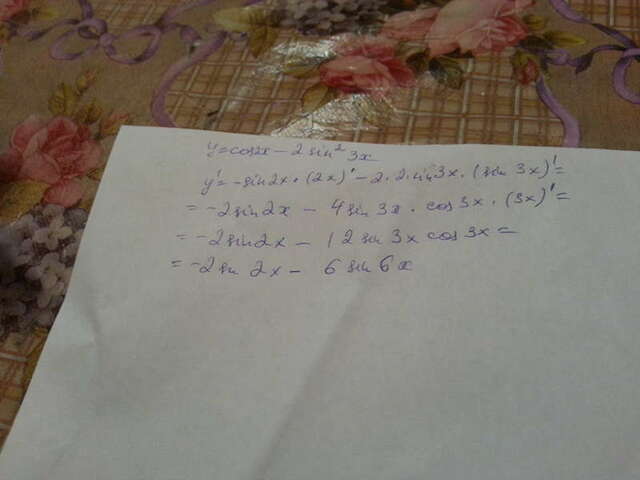 y=cos2x-2sin²3x
y'=-sin2x·(2x)'-2·2·sin3x·(sin3x)'=
=-2sin2x-4sin3x·cos3x·(3x)'=
=-2sin2x-12sin3xcos3x=
=-2sin2x-6sin6x